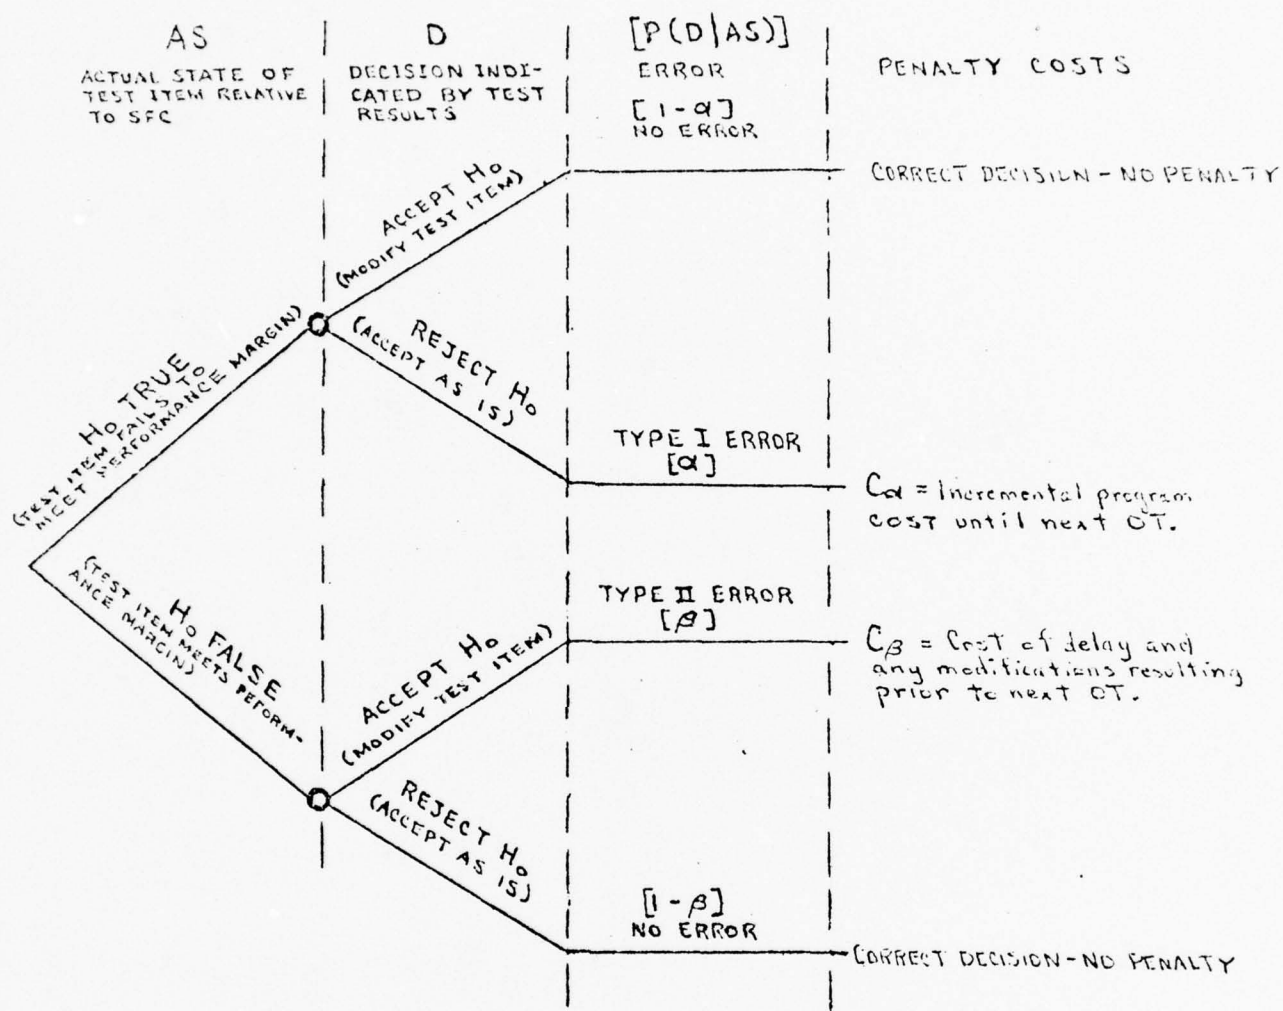 AS
ACTUAL STATE OF
TEST ITEM RELATIVE
TO SFC
D
DECISION INDI-
CATED BY TEST
RESULTS
[P(D|AS)]
ERROR
[1-α]
NO ERROR
PENALTY COSTS
ACCEPT H₀
(MODIFY TEST ITEM)
CORRECT DECISION - NO PENALTY
H₀ TRUE
(TEST ITEM FAILS TO
MEET PERFORMANCE MARGIN)
REJECT H₀
(ACCEPT AS IS)
TYPE I ERROR
[α]
Cα = Incremental program
COST until next OT.
H₀ FALSE
(TEST ITEM MEETS PEFORM-
ANCE MARGIN)
ACCEPT H₀
(MODIFY TEST ITEM)
TYPE II ERROR
[β]
Cβ = Cost of delay and
any modifications resulting
prior to next OT.
REJECT H₀
(ACCEPT AS IS)
[1-β]
NO ERROR
CORRECT DECISION - NO PENALTY